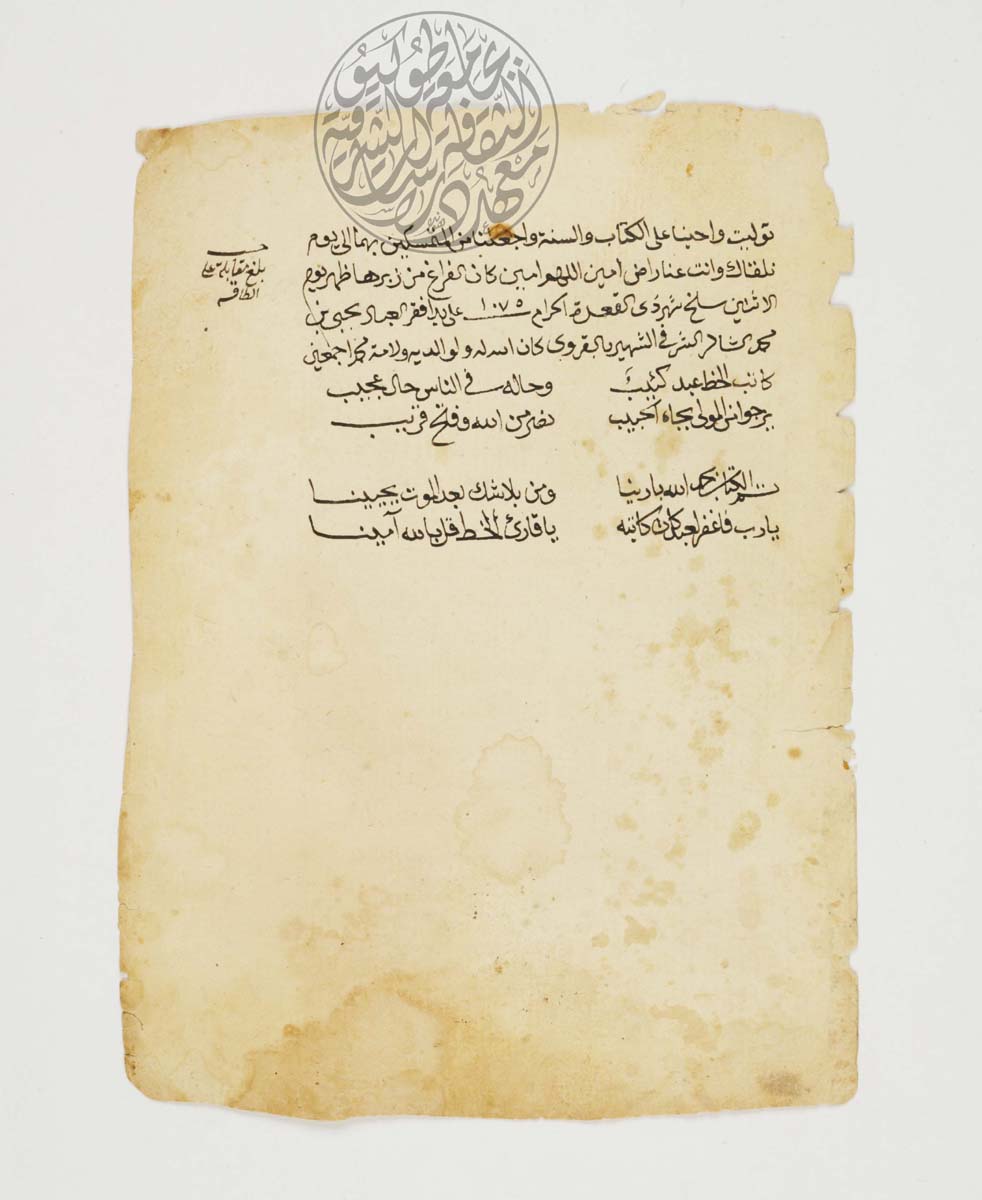 توليت واحينا على الكتاب والسنة واجعلنا من المتمسكين بهما الى يوم
نلقاك وانت عنا راض امين اللهم امين كان الفراغ من زبرها ظهر يوم
الاثنين سلخ شهر ذى القعدة الحرام سنة ١٠٧٥ على يد افقر العباد يحيى بن
محمد الشهير بالقروى كان الله له ولوالديه ولامة محمد اجمعين
كاتب الخط عبد كئيب وحاله في الناس حال عجيب
يرجو من المولى بجاه الحبيب نصر من الله وفتح قريب
تم الكتاب بحمد الله بارينا ومن بلا شك بعد الموت يحيينا
يارب فاغفر لعبد كان كاتبه يا قارئ الخط قل بالله آمينا
بلغ مقابلة على
الطاقة
معهد الثقافة والدراسات الشرقية
بجامعة طوكيو